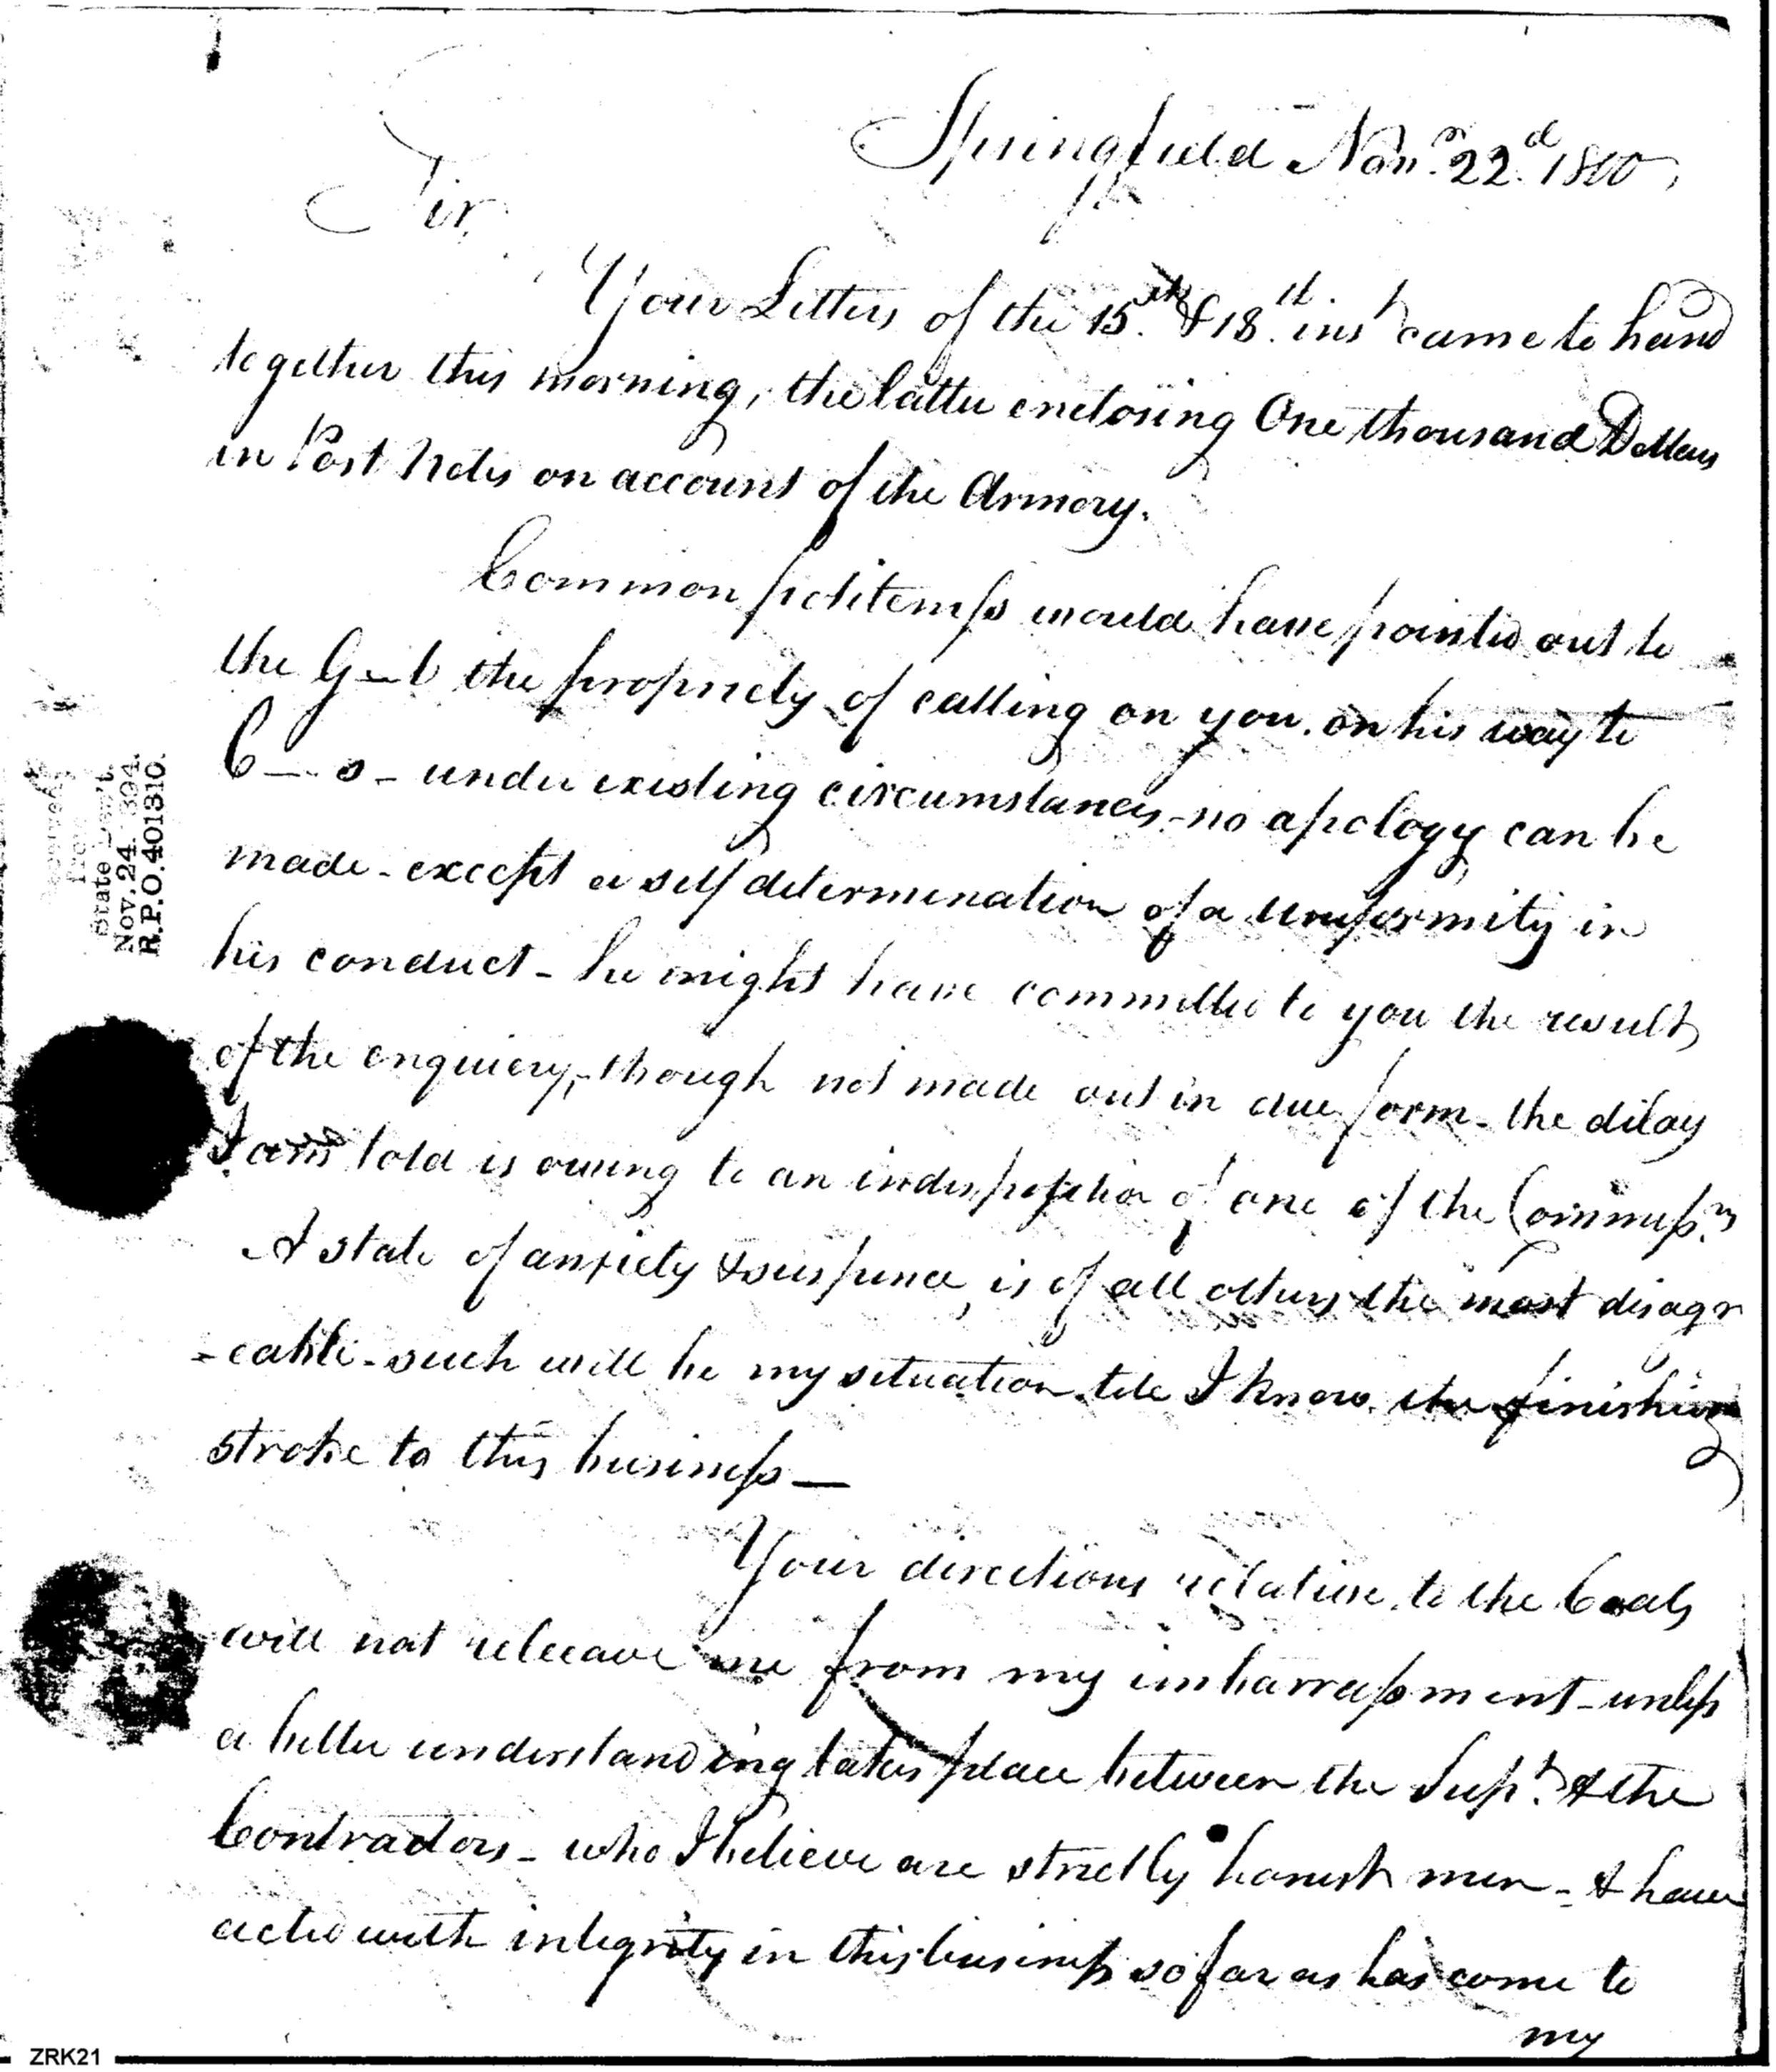 Springfield Novr. 22d. 1800,
Sir,
Your Letters of the 15th. & 18th. inst came to hand
together this morning, the latter enclosing One thousand Dollars
in Post Notes on account of the Armory.
Common politeness would have pointed out to
the G—l the propriety of calling on you on his way to
C—s— under existing circumstances—no apology can be
made—except a self determination of a uniformity in
his conduct—he might have committed to you the result
of the enquiery,—though not made out in due form—the delay
I am told is owing to an indisposition of one of the Commissrs.
A state of anxiety & suspence, is of all others the most disagr
-eable—such will be my situation till I know the finishing
stroke to this business—
Your directions relative to the Coals
will not releeave me from my imbarrassment—unless
a better understanding takes place between the Supt. & the
Contractors—who I believe are strictly honest men—& have
acted with integrity in this business so far as has come to
my
State Dep't.
Nov. 24. 1894.
R.P.O. 401310.
ZRK21